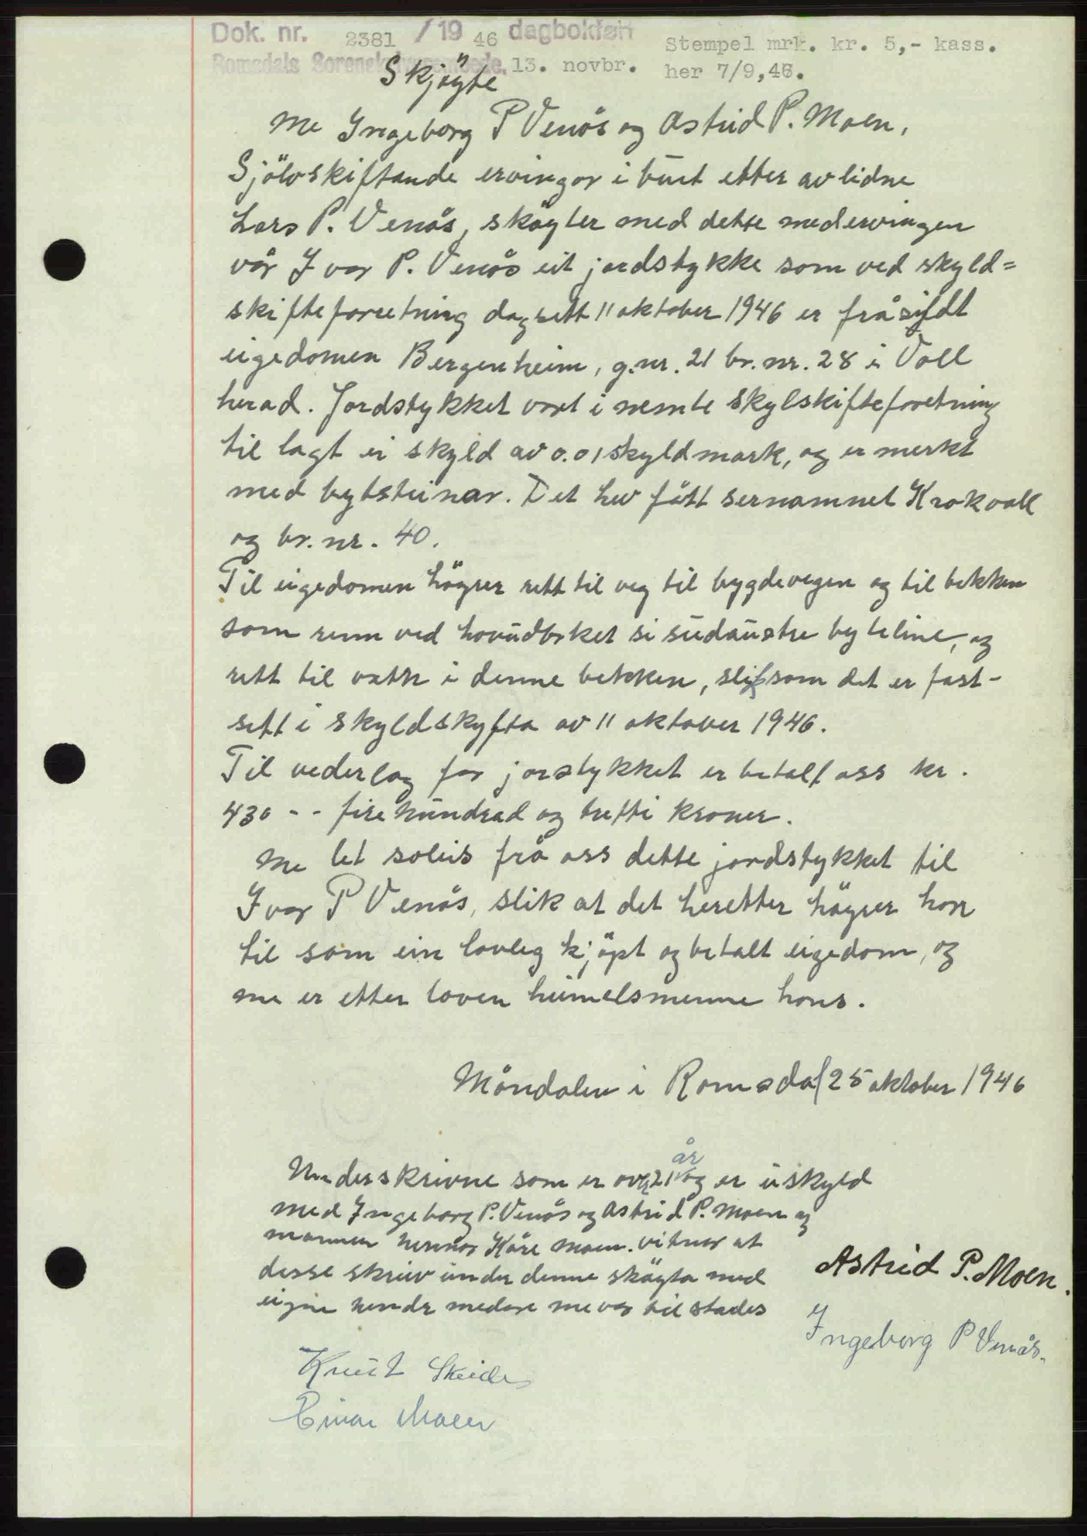 Dok. nr. 2381 / 19 46 dagbokført Stempel mrk. kr. 5,- kass.
Romsdals Sorenskriverembede, 13. novbr. her 7/9,46.
Skjøyte
Me Ingeborg P Venås og Astrid P. Moen,
Sjölvskiftande ervingar i buet etter avlidne
Lars P. Venås, skøyter med dette medervingen
vår Ivar P. Venås eit jordstykke som ved skyld=
skifteforretning dagsett 11 oktober 1946 er fråskydt
eigedomen Bergenheim, g.nr. 21 br.nr. 28 i Voll
herad. Jordstykket vart i nemte skylskifteforetning
til lagt ei skyld av 0.01 skyldmark, og er merkt
med bytsteinar. Det hev fått sernamnet Krokvoll
og br. nr. 40.
Til eigedomen höyrer rett til veg til bygdevegen og til bekken
som renn ved hovudbrket si sudaustre byteline, og
rett til vatn i denne bekken, slik som det er fast-
sett i skyldskyfta av 11 oktober 1946.
Til vederlag for jorstykket er betalt oss kr.
430 -- fire hundrad og tretti kroner.
Me let soleis frå oss dette jordstykket til
Ivar P Venås, slik at det heretter höyrer hon
til som ein lovleg kjöpt og betalt eigedom, og
me er etter loven heimelsmenne hans.
Måndalen i Romsdal 25 oktober 1946
år
Underskrivne som er over 21 og er uskyld
med Ingeborg P. Venås og Astrid P. Moen og
mannen hennar Kåre Moen. vitnar at
desse skreiv under denne skøyta med
eigne hender medan me var til stades
Astrid P. Moen.
Ingeborg P Venås.
Knut Skeide
Einar Moen